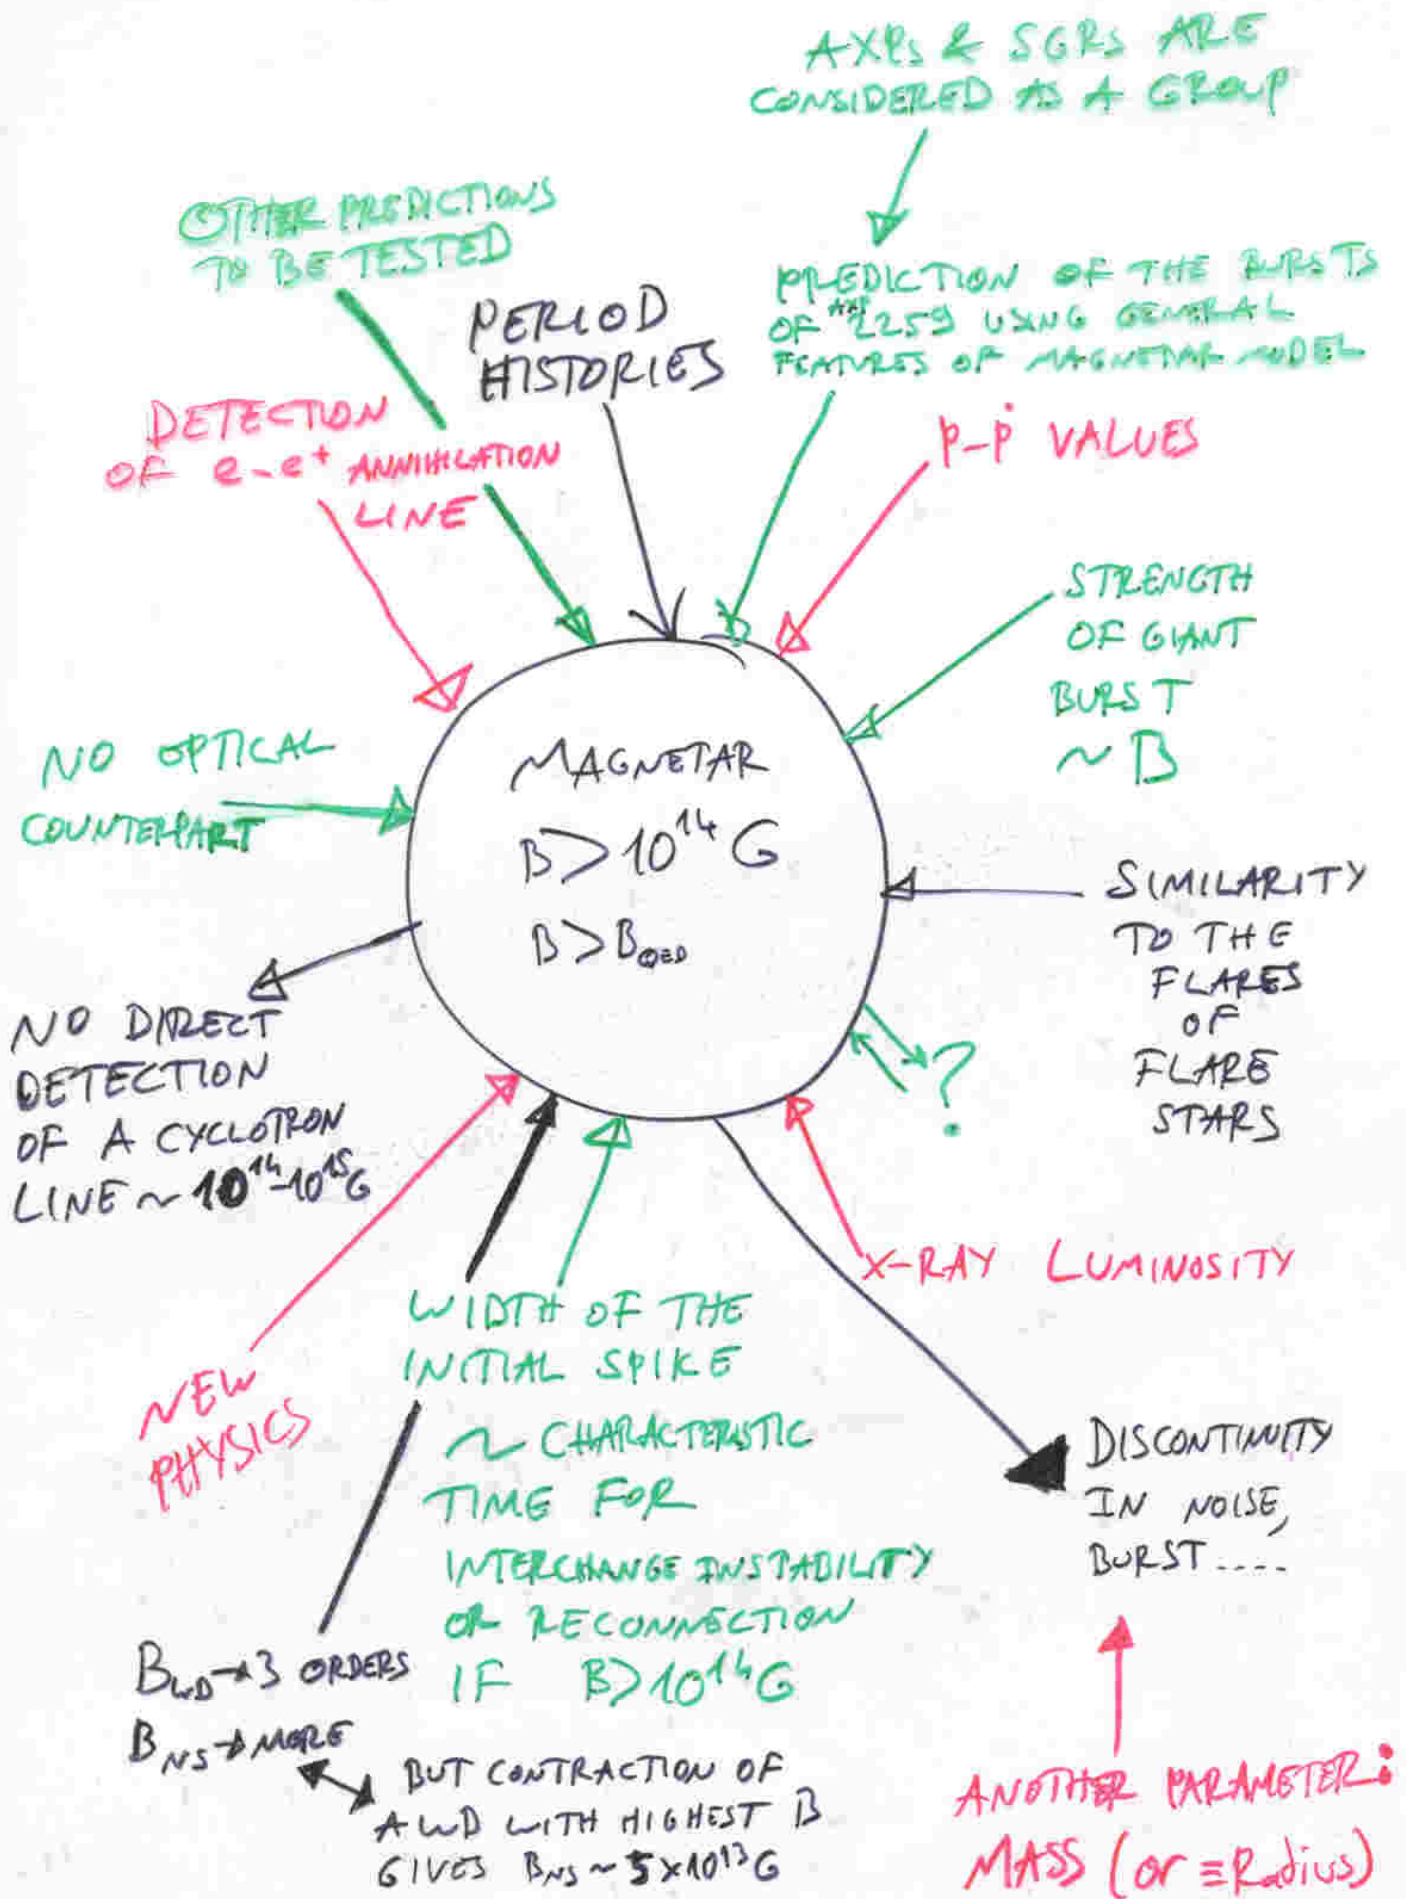 AXPs & SGRs ARE
CONSIDERED AS A GROUP
OTHER PREDICTIONS
TO BE TESTED
PREDICTION OF THE BURSTS
OF AXP 2259 USING GENERAL
FEATURES OF MAGNETAR MODEL
PERIOD
HISTORIES
DETECTION
OF e-e+ ANNIHILATION
LINE
P-Ṗ VALUES
STRENGTH
OF GIANT
BURST
~ B
NO OPTICAL
COUNTERPART
MAGNETAR
B > 10¹⁴ G
B > B_QED
SIMILARITY
TO THE
FLARES
OF
FLARE
STARS
NO DIRECT
DETECTION
OF A CYCLOTRON
LINE ~ 10¹⁴-10¹⁵G
?
X-RAY LUMINOSITY
NEW
PHYSICS
WIDTH OF THE
INITIAL SPIKE
~ CHARACTERISTIC
TIME FOR
INTERCHANGE INSTABILITY
OR RECONNECTION
IF B>10¹⁴G
DISCONTINUITY
IN NOISE,
BURST ....
B_WD → 3 ORDERS
B_NS → MORE
BUT CONTRACTION OF
A WD WITH HIGHEST B
GIVES B_NS ~ 5x10¹³G
ANOTHER PARAMETER:
MASS (or ≡ Radius)